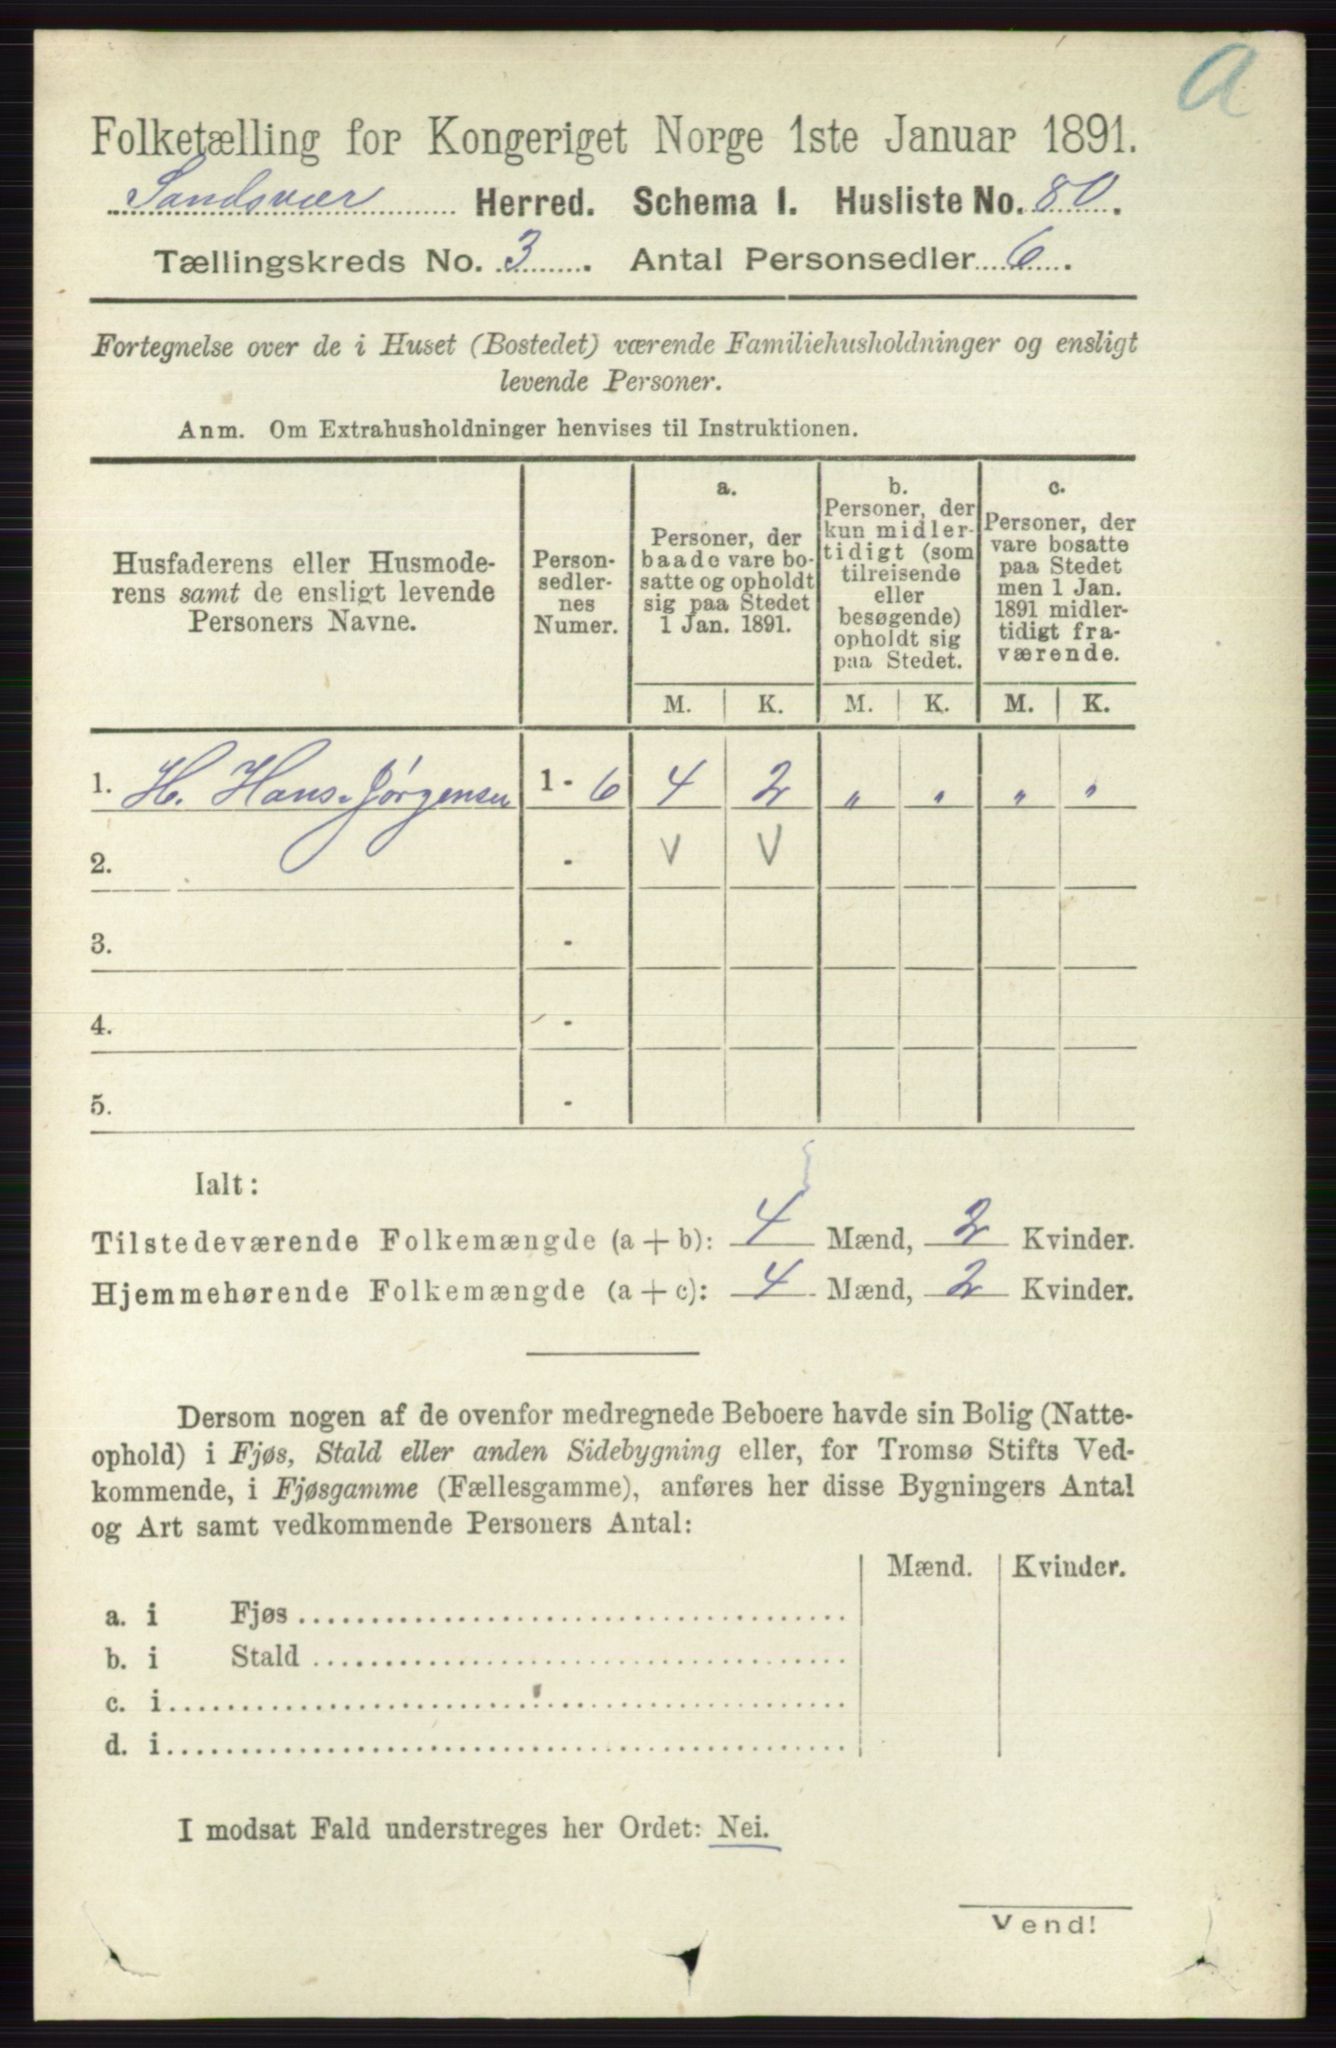 a
Folketælling for Kongeriget Norge 1ste Januar 1891.
Sandsvær Herred. Schema I. Husliste No. 80.
Tællingskreds No. 3. Antal Personsedler 6.
Fortegnelse over de i Huset (Bostedet) værende Familiehusholdninger og ensligt
levende Personer.
Anm. Om Extrahusholdninger henvises til Instruktionen.
Husfaderens eller Husmode-
rens samt de ensligt levende
Personers Navne.
Person-
sedler-
nes
Numer.
a.
Personer, der
baade vare bo-
satte og opholdt
sig paa Stedet
1 Jan. 1891.
b.
Personer, der
kun midler-
tidigt (som
tilreisende
eller
besøgende)
opholdt sig
paa Stedet.
c.
Personer, der
vare bosatte
paa Stedet
men 1 Jan.
1891 midler-
tidigt fra-
værende.
M. K. M. K. M. K.
1. H. Hans Jørgensen 1 - 6 4 2 " " " "
2. - V V
3. -
4. -
5. -
Ialt:
Tilstedeværende Folkemængde (a + b): 4 Mænd, 2 Kvinder.
Hjemmehørende Folkemængde (a + c): 4 Mænd, 2 Kvinder.
Dersom nogen af de ovenfor medregnede Beboere havde sin Bolig (Natte-
ophold) i Fjøs, Stald eller anden Sidebygning eller, for Tromsø Stifts Ved-
kommende, i Fjøsgamme (Fællesgamme), anføres her disse Bygningers Antal
og Art samt vedkommende Personers Antal:
Mænd. Kvinder.
a. i Fjøs
b. i Stald
c. i
d. i
I modsat Fald understreges her Ordet: Nei.
Vend!